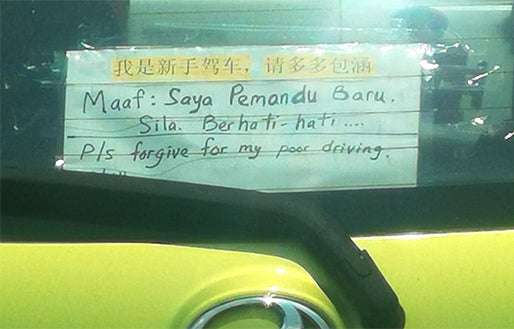 我是新手驾车，请多多包涵
Maaf: Saya Pemandu Baru.
Sila. Berhati-hati....
Pls forgive for my poor driving.